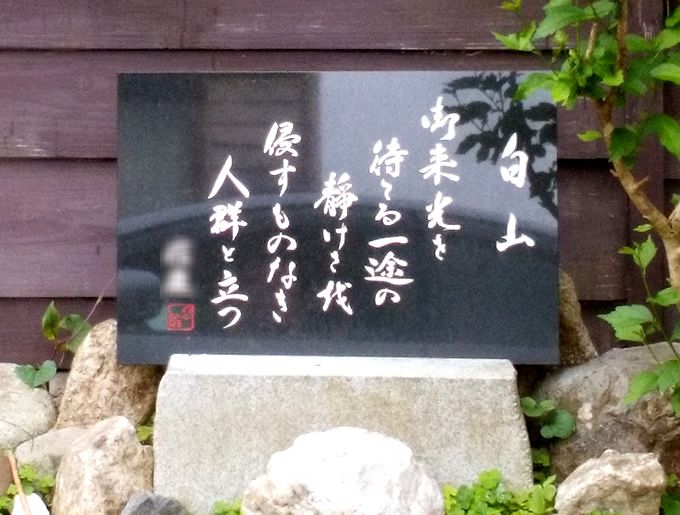 白山
御来光を
待てる一途の
静けさ我
侵すものなき
人群と立つ